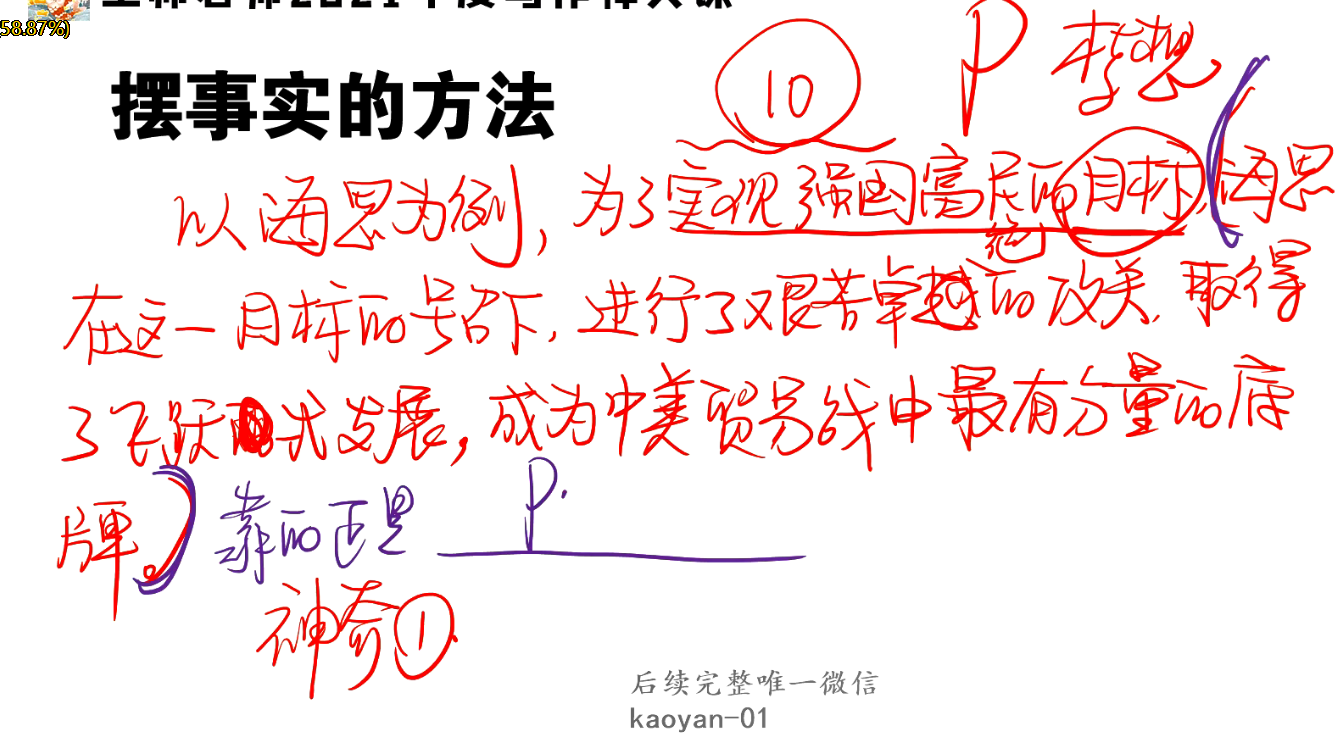 58.87%)
2021年度写作
摆事实的方法
10
P 梦想
以海思为例，为了实现强国富民的目标，海思
绝
在这一目标的号召下，进行了艰苦卓越的攻关，取得
了飞跃式发展，成为中美贸易战中最有分量的底
牌。靠的正是 P.
神奇①.
后续完整唯一微信
kaoyan-01